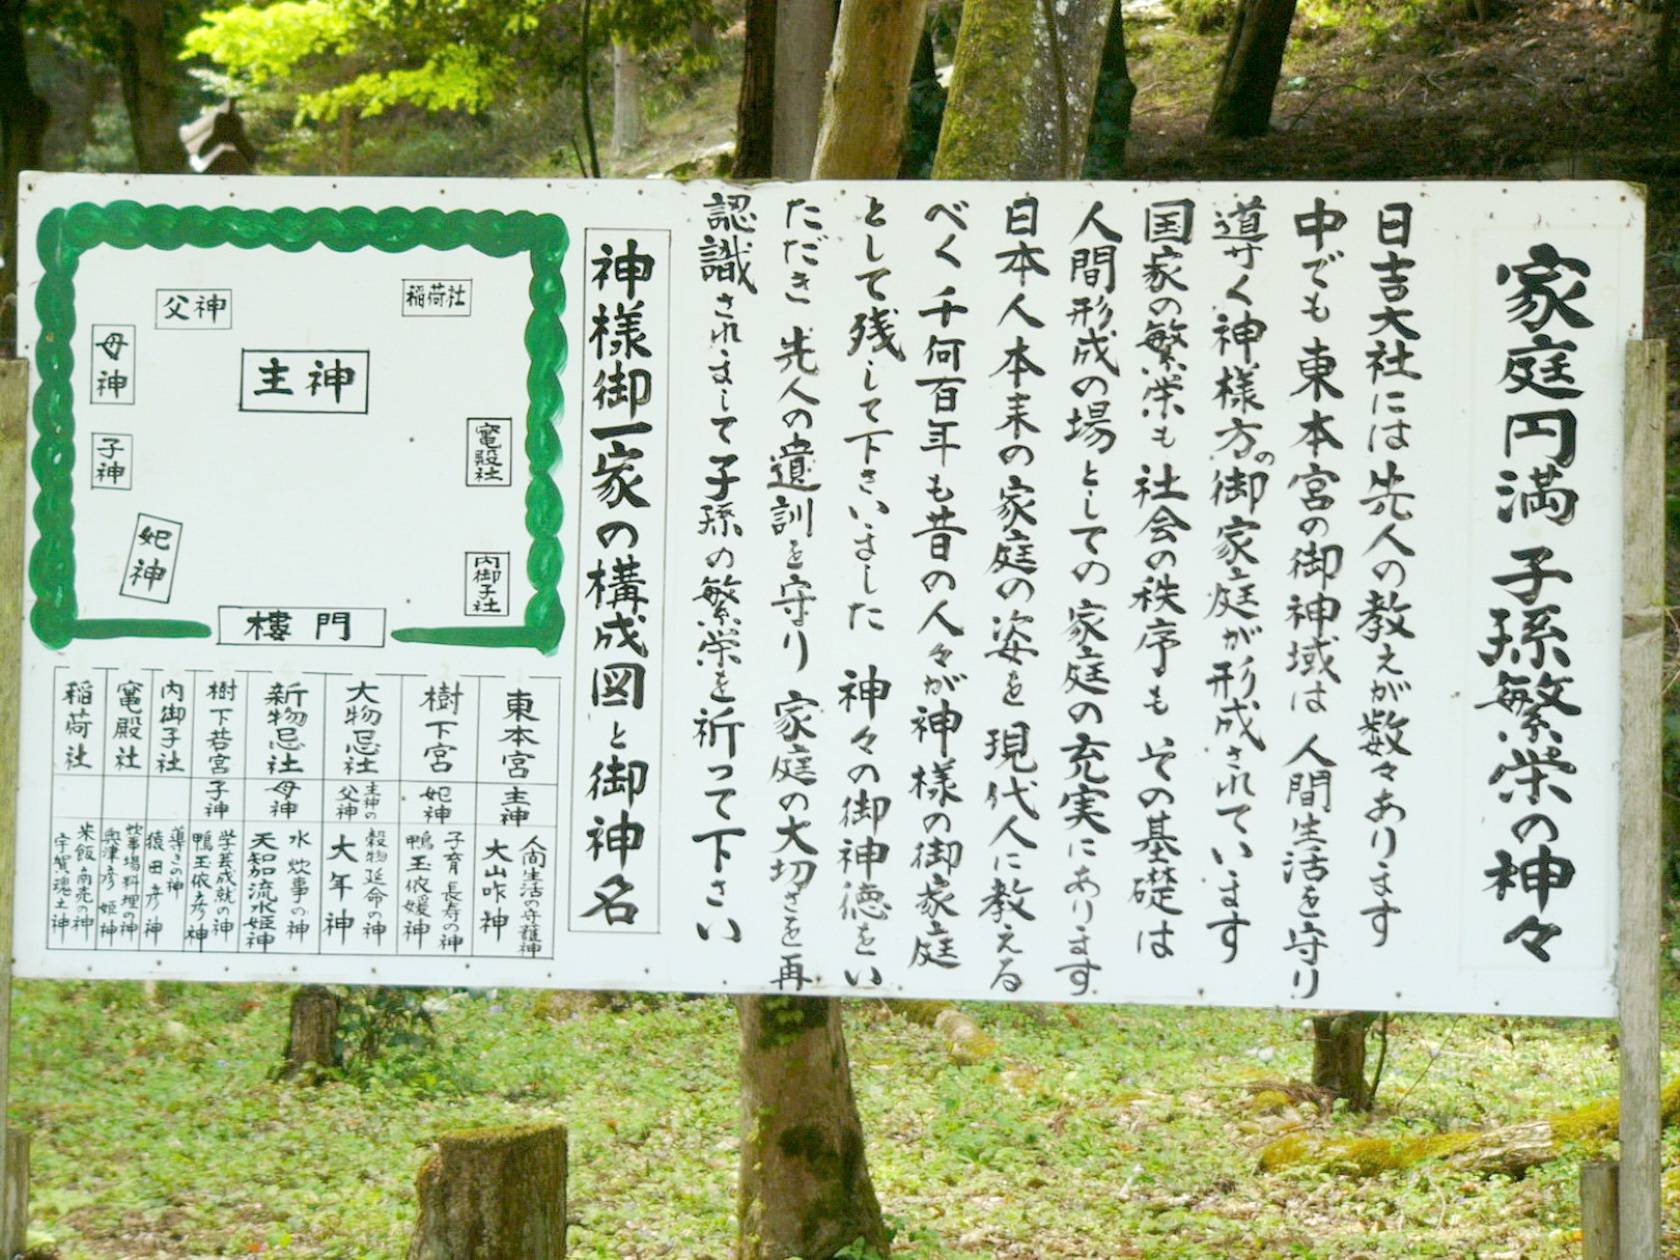 家庭円満 子孫繁栄の神々
日吉大社には先人の教えが数々あります
中でも東本宮の御神域は 人間生活を守り
導サく神様方の御家庭が形成されています
国家の繁栄も 社会の秩序も その基礎は
人間形成の場としての 家庭の充実にあります
日本人本来の家庭の姿を 現代人に教える
べく 千何百年も昔の人々が神様の御家庭
として残して下さいました 神々の御神徳をい
ただき 先人の遺訓を守り 家庭の大切さを再
認識されまして子孫の繁栄を祈って下さい
神様御一家の構成図と御神名
稲荷社
父神
母神
主神
子神
竃殿社
妃神
内御子社
樓門
東本宮 主神 人間生活の守護神 大山咋神
樹下宮 妃神 子育 長寿の神 鴨玉依媛神
大物忌社 主神の父神 穀物延命の神 大年神
新物忌社 母神 水 炊事の神 天知迦流水姫神
樹下若宮 子神 学芸成就の神 鴨玉依彦神
内御子社 導きの神 猿田彦神
竃殿社 炊事場料理の神 奥津彦 姫神
稲荷社 米飯商売の神 宇賀魂土神